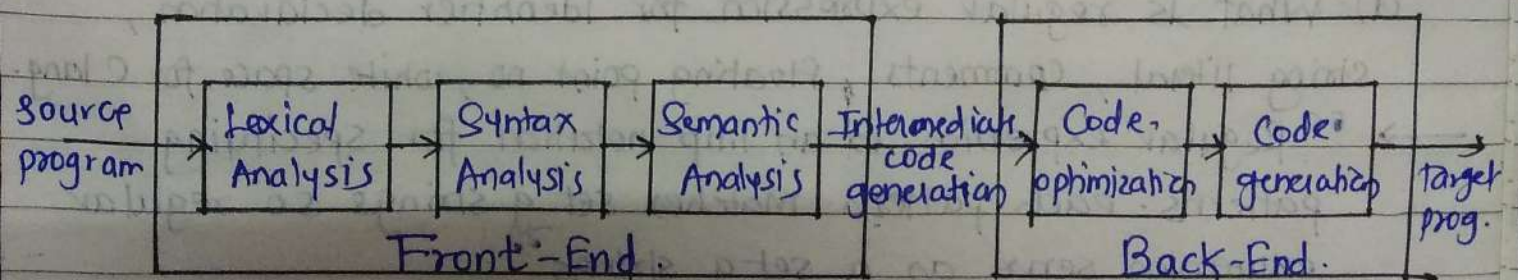 Source
program
Lexical
Analysis
Syntax
Analysis
Semantic
Analysis
Intermediate
code
generation
Code
optimization
Code
generation
Target
prog.
Front-End.
Back-End.